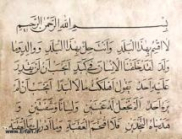 بسم الله الرحمن الرحيم
لا اقسم بهذا البلد وانت حل بهذا البلد ووالد وما
ولد لقد خلقنا الانسان في كبد ايحسب ان لن يقدر
عليه احد يقول اهلكت مالا لبدا ايحسب ان لم
يره احد الم نجعل له عينين ولسانا وشفتين و
هديناه النجدين فلا اقتحم العقبة وما